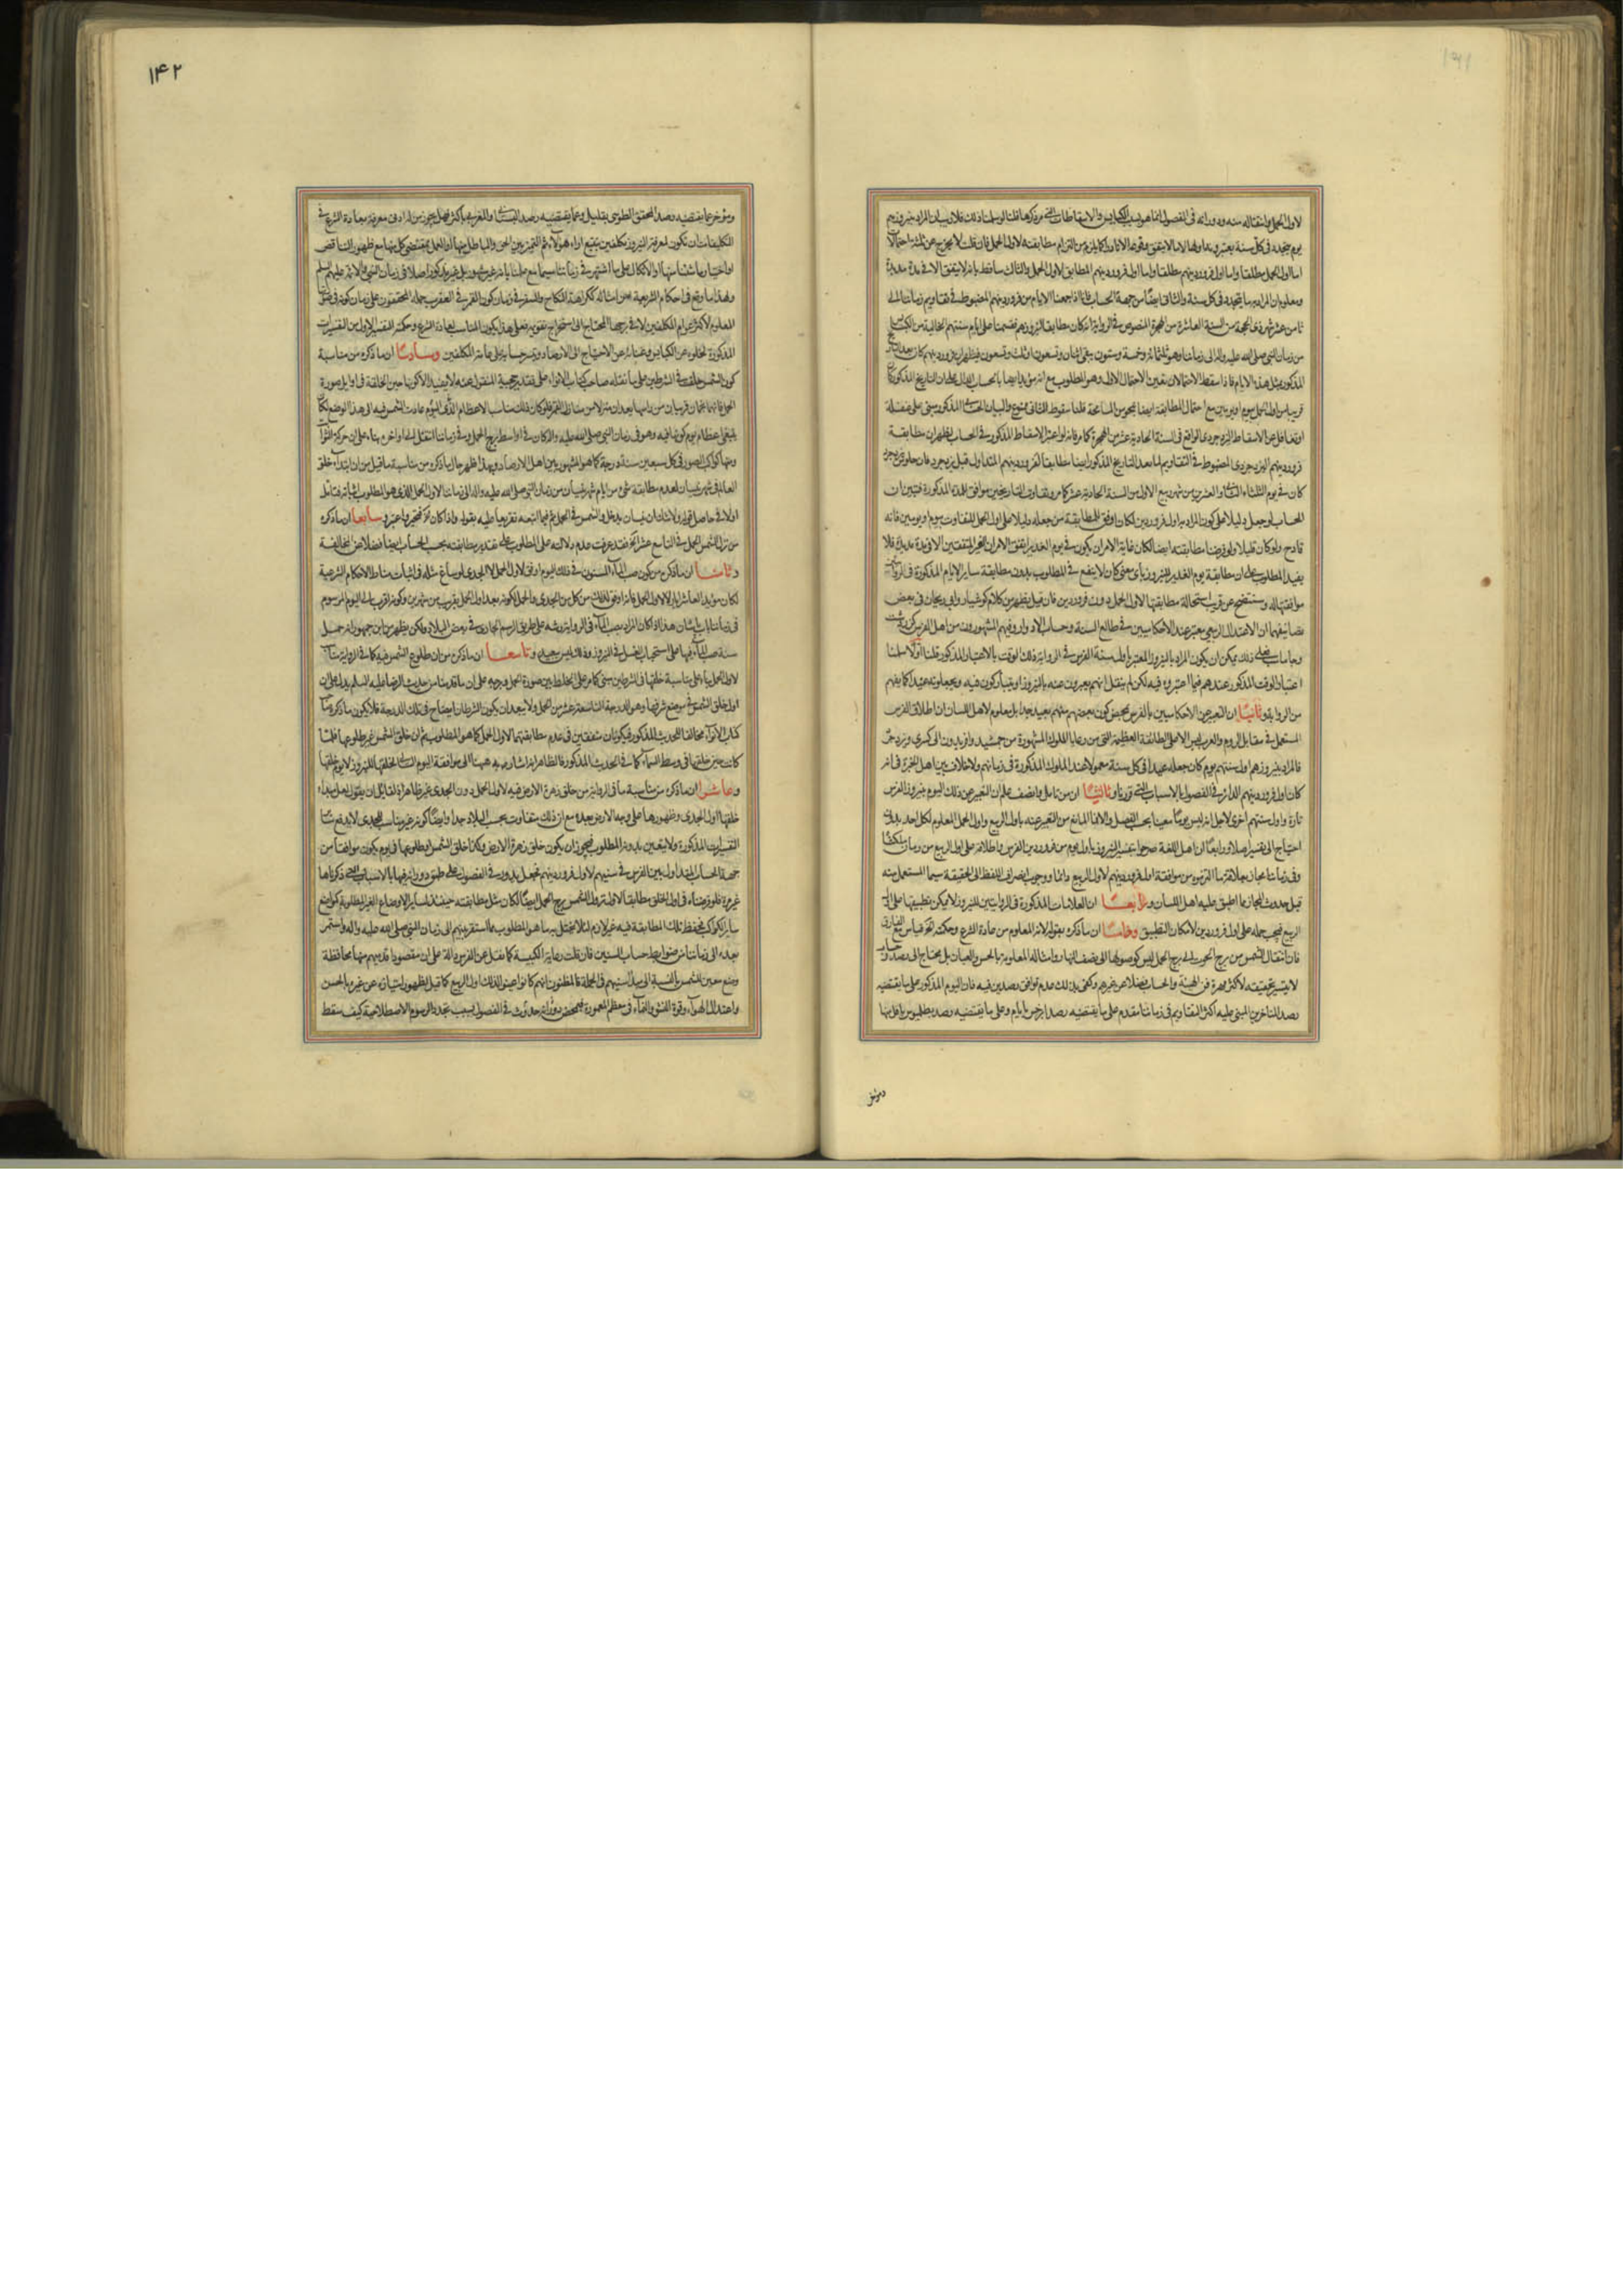 ١٤١
لاول الحمل وانتقاله منه ودورانه فى الفصول انما هو بسبب الكبايس والاسقاطات التى مر ذكرها قلنا لو سلمنا ذلك فلا ريب ان المراد بنيروزهم
يوم يتجدد فى كل سنة
اما اول الحمل مطلقا واما اول فروردينهم مطلقا واما اول فروردينهم المطابق لاول الحمل والثالث ساقط بانه لا يتفق الا فى مدة مديدة
ومعلوم ان المراد به ما يتجدد فى كل سنة والثانى ايضا من جهة الحساب فانا اذا جمعنا الايام من فروردينهم المضبوط فى تقاويم زماننا الى
ثامن عشر شهر ذى الحجة من السنة العاشرة من الهجرة المنصوص فى الرواية انه كان مطابقا لنيروزهم
من زمان النبى صلى الله عليه واله الى زماننا وهو ثلثمائة وخمسة وستون
المذكور بمثل هذه الايام فاذا سقط الاحتمالان تعين الاحتمال الاول وهو المطلوب
قريبا من اول الحمل بيوم او يومين مع احتمال المطابقة ايضا قلنا سقوط الثانى ممنوع والبيان المذكور مبنى على غفلة
او تغافل عن الاسقاط اليزدجردى الواقع فى السنة الحادية عشر من الهجرة كما مر فانه لو اعتبر الاسقاط المذكور فى الحساب لظهر ان مطابقة
فروردينهم اليزدجردى المضبوط فى التقاويم لما بعد التاريخ المذكور
كان فى يوم الثلثاء الثانى والعشرين من شهر ربيع الاول من السنة الحادية عشر كما مر
الحساب لو جعل دليلا على كون المراد به اول فروردين لكان اوفق للمطابقة من جعله دليلا على اول الحمل للتفاوت بيوم او يومين فانه
قادح ولو كان قليلا ولو فرضنا مطابقته ايضا لكان غاية الامر ان يكون فى يوم الغدير اتفق الامران الغير المتفقين الا فى مدة مديدة فلا
يفيد المطلوب على ان مطابقة يوم الغدير للنيروز باى معنى كان لا ينفع فى المطلوب بدون مطابقة ساير الايام المذكورة فى الرواية
موافقتها له وسنتضح عن قريب استحالة مطابقتها لاول الحمل دون فروردين فان قيل يظهر من كلام كوشيار وابى ريحان فى بعض
تصانيفهما ان الاعتدال الربيعى يعتبر عند الاحكاميين فى طالع السنة وحساب الادوار وفيهم المشهورون من اهل الفرس
وجاماسب فعلى ذلك يمكن ان يكون المراد بالنيروز المعتبر باول سنة الفرس فى الرواية ذلك الوقت بالاعتبار المذكور قلنا اولا سلمنا
اعتبار الوقت المذكور عندهم فيما اعتبروه فيه لكن لم ينقل انهم يعبرون عنه بالنيروز او يتبركون فيه ويجعلونه عيدا كما يفهم
من الرواية وثانيا ان التعبير عن الاحكاميين بالفرس بمحض كون بعضهم منهم بعيد جدا بل معلوم لاهل اللسان ان اطلاق الفرس
المستعمل فى مقابل الروم والعرب ليس الا على الطائفة العظيمة التى من رعايا الملوك المشهورة من جمشيد وافريدون الى كسرى ويزدجرد
فالمراد بنيروزهم اول سنتهم يوم كان جعله عيدا فى كل سنة معمولا عند الملوك المذكورة فى زمانهم ولا خلاف بين اهل الخبرة فى انه
كان اول فروردينهم الداير فى الفصول بالاسباب التى قررناه وثالثا ان من تامل وانصف علم ان التعبير عن ذلك اليوم بنيروز الفرس
تارة واول سنتهم اخرى لاجل انه ليس يوما معينا بحسب الفصل والا فما المانع من التعبير عنه باول الربيع واول الحمل المعلوم لكل احد بدون
احتياج الى تفسير اصلا ورابعا ان اهل اللغة صرحوا بتفسير النيروز باول يوم من فروردين الفرس واطلاقه على اول الربيع من زمان ملكشاه
وفى زماننا مجاز بعلاقة ما التزموه من موافقة اول فروردينهم لاول الربيع دائما ووجوب انصراف اللفظ الى الحقيقة سيما المستعمل منه
قبل حدوث المجاز مما اطبق عليه اهل اللسان ورابعا ان العلامات المذكورة فى الروايتين للنيروز لا يمكن تطبيقها على اول
الربيع فيجب حمله على اول فروردين لامكان التطبيق وخامسا ان ما ذكره بقوله لانه المعلوم من عادة الشرع وحكمته الخ قياس مع الفارق
فان انتقال الشمس من برج الحوت الى برج الحمل ليس كوصولها الى نصف النهار وامثاله المعلومة بالحس والعيان بل يحتاج الى رصد وحساب
لا يتيسر تحقيقه لاكثر مهرة فن الهيئة والحساب فضلا عن غيرهم وكفى بذلك عدم توافق رصدين فيه فان اليوم المذكور على ما يقتضيه
رصد المتاخرين المبنى عليه اكثر التقاويم فى زماننا مقدم على ما يقتضيه رصد ابرخس بايام وعلى ما يقتضيه رصد بطلميوس باقل منها
ومؤخر
١۴٢
ومؤخر عما يقتضيه رصد المحقق الطوسى بقليل وعما يقتضيه رصد البتانى والمغربى باكثر فهل يجوز من له ادنى معرفة بعادة الشرع فى
التكليفات ان تكون لمعرفة النيروز مكلفين بتتبع اراء هؤلاء ثم التمييز بين الحق والباطل منها او العمل بمقتضى كل منها مع ظهور التناقض
او اختيار ما شئنا منها او الاتكال على ما اشتهر فى زماننا سيما مع علمنا بانه غير مشهور بل غير مذكور اصلا فى زمان النبى والائمة عليهم السلم
ولهذا ما وقع فى احكام الشرعية من امثاله ككراهة النكاح والسفر فى زمان كون القمر فى العقرب حمله المحققون على زمان كونه فى صورتها
المعلوم لاكثر عوام المكلفين لا فى برجها المحتاج الى استخراج تقويم فعلى هذا يكون المناسب لعادة الشرع وحكمته التفسير الاول من التفسيرات
المذكورة لخلوه عن الكبايس وغنائه عن الاحتياج الى الارصاد وتيسر حسابه على عامة المكلفين وسادسا ان ما ذكره من مناسبة
كون الشمس خلقت فى الشرطين على ما نقله صاحب كتاب الانواء على تقدير حجية المنقول عنه لا يفيد الا كونها حين الخلقة فى اوايل صورة
الحمل فانهما نجمان قريبان من راسها يعدان منزلا من منازل القمر فلو كان ذلك مناسبا لاعظام اليوم الذى عادت الشمس فيه الى هذا الوضع لكان
ينبغى اعظام يوم كونها فيه وهو فى زمان النبى صلى الله عليه واله كان فى اواسط برج الحمل وفى زماننا انتقل الى اواخره بناء على ان حركة الثوابت
ومنها كواكب الصور فى كل سبعين سنة درجة كما هو المشهور بين اهل الارصاد وبهذا ظهر حال ما ذكره من مناسبة ما قيل من ان ابتداء خلق
العالم فى شهر نيسان لعدم مطابقة شىء من ايام شهر نيسان من زمان النبى صلى الله عليه واله الى زماننا لاول الحمل الذى هو المطلوب اثباته فتامل
اولا فى حاصل قوله ولا شك ان نيسان يدخل والشمس فى الحمل ثم فيما اتبعه تفريعا عليه بقوله واذا كان وسابعا ان ما ذكره
من نزول الشمس الحمل فى التاسع عشر الخ فقد عرفت عدم دلالته على المطلوب على تقدير مطابقته بحسب الحساب ايضا فضلا عن المخالفة
وثامنا ان ما ذكره من كون صب الماء المسنون فى ذلك اليوم اوفق لاول الحمل لا الجدى لو ساغ مثله فى اثبات مناط الاحكام الشرعية
لكان مؤيدا
فى زماننا بآب پاشان هذا اذا كان المراد بصب الماء فى الرواية رشه على طريق الرسم الجارى فى بعض البلاد ولكن يظهر من ابن جمهور انه حمل
سنة صب الماء فيها على استحباب الغسل فى النيروز وذلك ليس ببعيد وتاسعا ان ما ذكره من ان طلوع الشمس فيه كما فى الرواية مناسب
لاول الحمل بناء على مناسبة خلقها فى الشرطين مبنى كما مر على الخلط بين صورة الحمل وبرجه على ان ما قدمنا من حديث الرضا عليه السلم يدل على ان
اول خلق الشمس فى موضع شرفها وهو الدرجة التاسعة عشر من الحمل ولا يبعد ان يكون الشرطان ايضا فى تلك الدرجة فلا يكون ما ذكره من
كتاب الانواء مخالفا للحديث المذكور فيكونان متفقين فى عدم مطابقتهما لاول الحمل كما هو المطلوب ثم ان خلق الشمس غير طلوعها فلما
كانت حين خلقها فى وسط السماء كما فى الحديث المذكور فالظاهر
وعاشرا ان ما ذكره من مناسبة ما فى الرواية من خلق زهرة الارض فيه لاول الحمل دون الجدى غير ظاهر اذ لقائل ان يقول لعل مبداء
خلقها اول الجدى وظهورها على وجه الارض بعده مع ان ذلك متفاوت بحسب البلاد جدا وايضا كونه غير مناسب للجدى لا يدفع ساير
التفسيرات المذكورة ولا يتعين بدونه المطلوب فيجوز ان يكون خلق زهرة الارض وكذا خلق الشمس او طلوعها فى يوم يكون موافقا من
جهة الحساب المتداول بين الفرس فى سنيهم لاول فروردينهم فجعل يدور فى الفصول على طبق دورانه فيها بالاسباب التى ذكرناها
غير مرة فلو فرضناه فى اول الخلق مطابقا لاول نزول الشمس برج الحمل ايضا لكان مثل مطابقته حينئذ لساير الاوضاع الغير المطلوبة كمواضع
ساير الكواكب فحفظ تلك المطابقة فيه غير لازم لئلا يختل به ما هو المطلوب مما استقر بينهم الى زمان النبى صلى الله عليه واله واستمر
بعده الى زماننا من ضوابط حساب السنين فان قلت رعاية الكبيسة كما نقل عن الفرس دالة على ان مقصود قدمائهم منها محافظة
وضع معين للشمس بالنسبة الى مبدا سنيهم فى الجملة فالمظنون انهم كانوا عينوا لذلك اول الربيع كما قيل لظهور امتيازه عن غيره بالحسن
واعتدال الهواء وقوة النشو والنماء فى معظم المعمورة فبمحض دورانه حادث فى الفصول بسبب تجدد الرسوم الاصطلاحية كيف سقط